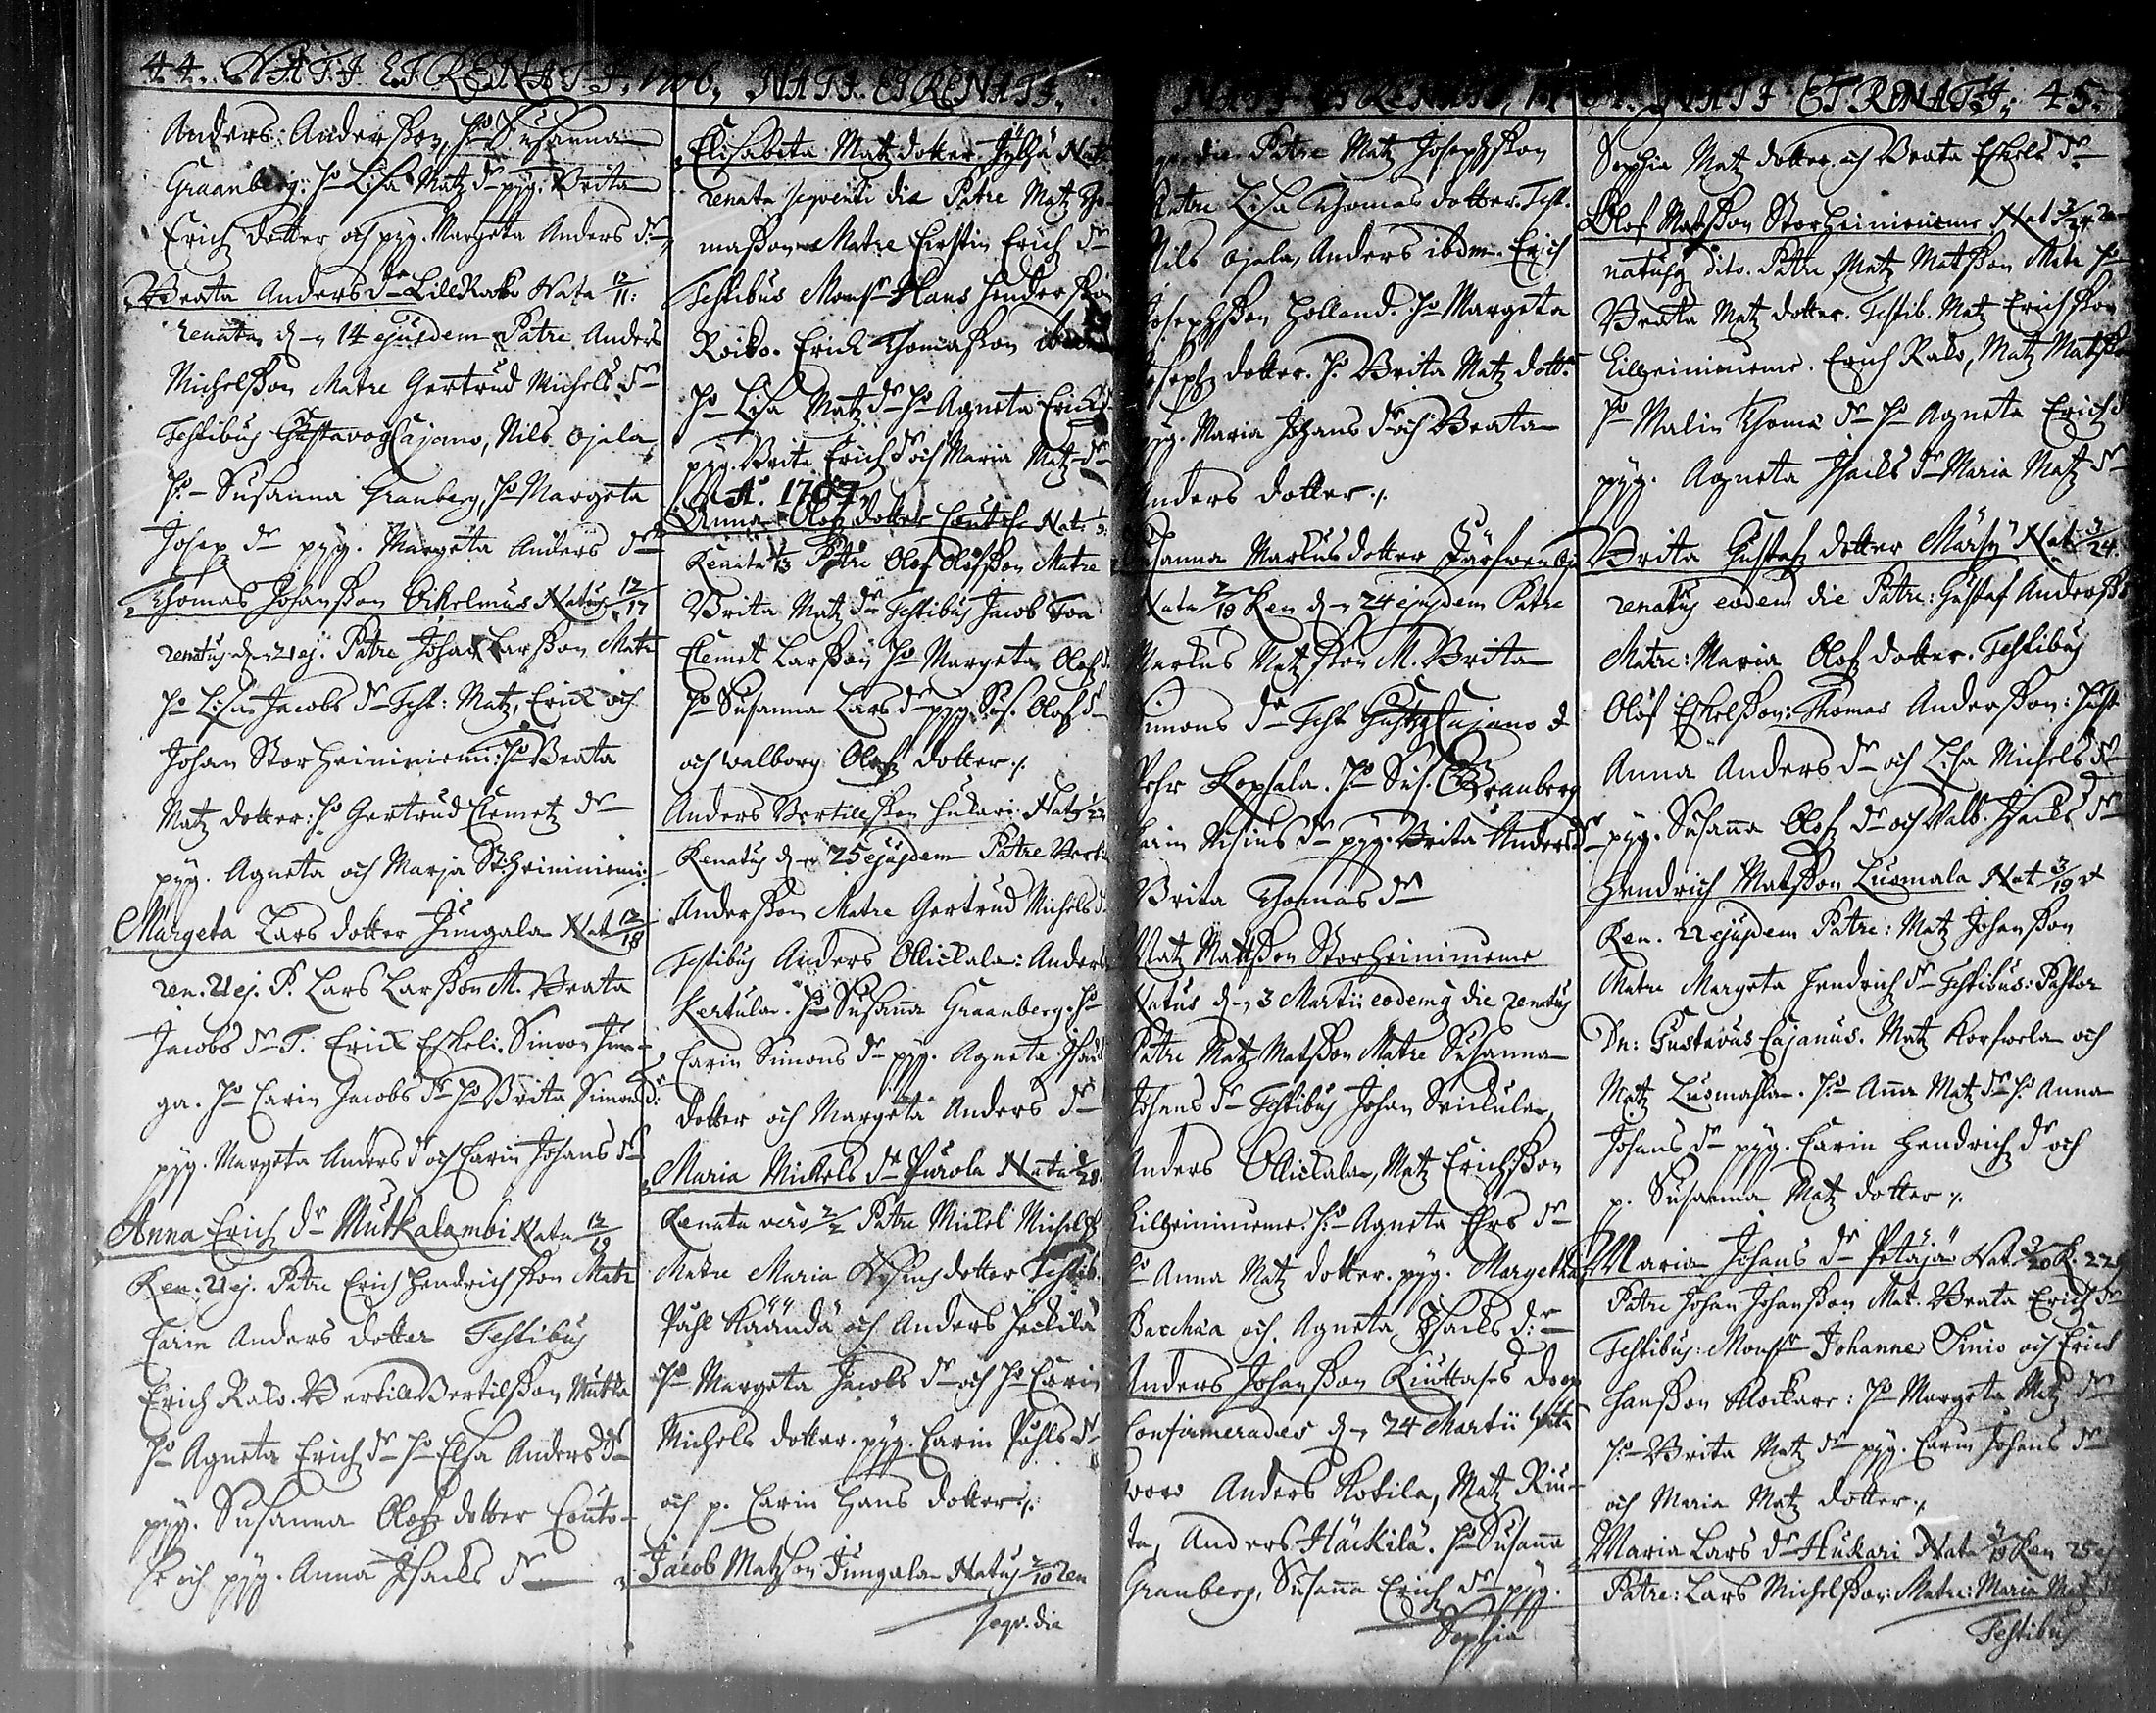 44. NATI ET RENATI, 1706, NATI ET RENATI,
Anders Andersson, Ho Susanna
Graanberg: Ho Lisa Matz dr pyg. Brita
Erich dotter och pyg. Margeta Anders dr
Beata Anders dr LillRako Nata 12/11:
renata d. 14 ejusdem Patre Anders
Michelsson Matre Gertrud Michels dr
Testibus Gustavo Cajano, Nils Ojala
Ho Susanna Granberg, Ho Margeta
Josep dr pyg. Margeta Anders dr
Thomas Johansson Natus 12/17
renatus d. 21 ej. Patre Johan Larsson Matr
Ho Lisa Jacobs dr Test: Matz, Erick och
Johan Storheininiemi: Ho Beata
Matz dotter: Ho Gertrud Clemetz dr
pyg. Agneta och Marja St:heininiemi
Margeta Lars dotter Jungala Nat 12/18
ren. 21 ej. P. Lars Larsson M. Beata
Jacobs dr T. Erick Eskeli. Simon Jun-
ga. Ho Carin Jacobs dr Ho Brita Simons d:
pyg. Margeta Anders dr och Carin Johans dr
Anna Erich dr Mutkalambi Nata 12/19
Ren. 21 ej. Patre Erich Hendrichsson Matr
Carin Anders dotter Testibus
Erich Rako. Bertill Bertilsson Mutka
Ho Agneta Erich dr Ho Elsa Anders dr
pyg. Susanna Olofz dotter Couto-
och pyg. Anna Isacks dr
Elisabeta Matz dotter Jylhä Nat
renata sequenti die Patre Matz Tho-
masson Matre Kirstin Erich dr
Testibus Monsr Hans Hindersson
Roiko. Erich Thomasson
Ho Lisa Matz dr Ho Agneta Erich
pyg. Brita Erich dr och Maria Matz dr
Ao. 1707.
Anna Olofz dotter Nat. 1/3
Renata Patre Olof Olofsson Matre
Brita Matz dr Testibus Jacob
Clemet Larsson Ho Margeta Olofz
Ho Susanna Lars dr pyg. Sus. Olofz d
och walborg Olofz dotter.
Anders Bertillsson Hukari Nat 1/22
Renatus d. 25 ejusdem Patre Bertil
Andersson Matre Gertrud Michels d
Testibus Anders Ollickala: Anders
Kertula. Ho Susanna Graanberg. Ho
Carin Simons dr pyg. Agneta Isacks
dotter och Margeta Anders dr
Maria Mickels dr Purola Nata 1/28
Renata vero 2/2 Patre Mickel Michels
Matre Maria dotter Testib.
Påhl Käändä och Anders Heckilä
Ho Margeta Jacobs dr och Ho Carin
Michels dotter. pyg. Carin Påhls dr
och p. Carin Hans dotter.
Jacob Matzson Jungala Natus 2/10 ren
seqv. die
NATI ET RENATI, NATI ET RENATI, 45.
die Patre Matz Josephsson
Matre Lisa Thomas dotter. Test.
Nils Ojala, Anders ibdm. Erich
Josephsson Holland. Ho Margeta
Joseph dotter. Ho Brita Matz dott.
pyg. Maria Johans dr och Beata
Anders dotter.
Susanna Markus dotter
Nata 2/19 Ren d. 24 ejusdem Patre
Markus Matzsson M. Brita
Simons dr Test Cajano &
Pehr Kopsala. Ho Sus. Granberg
Carin dr pyg. Brita Anders dr
Brita Thomas dr
Matz Mattsson Storheinimeme
Natus d. 3 Martii eodemq die renatus
Patre Matz Matsson Matre Susanna
Johans dr Testibus Johan
Anders Ollickala, Matz Erichsson
Lillheinimeme. Ho Agneta dr
Ho Anna Matz dotter. pyg. Margetha
Bacchea och Agneta Isacks d:r
Anders Johansson Riuttases doop
Confirmerades d. 24 Martii
woro Anders Kokila, Matz Riu-
ta, Anders Häckilä. Ho Susanna
Granberg, Susanna Erich dr pyg.
Sophia
Sophia Matz dotter och Beata Eskels dr
Olof Matsson Storheinimeme Nat 3/24
natusq dito. Patre Matz Matsson Matr Ho
Beata Matz dotter. Testib. Matz Erichsson
Lillheinimeme. Erich Rako, Matz Matsson
Ho Malin Thoma dr Ho Agneta Erich d
pyg. Agneta Isacks dr Maria Matz dr
Brita Gustafz dotter Märsy Nat 3/24.
renatus eodem die Patre: Gustaf Anderss
Matre: Maria Olofz dotter. Testibus
Olof Eskelsson: Thomas Andersson: Hust
Anna Anders dr och Lisa Michels dr
pyg. Susanna Olofz dr och Walb. Isacks dr
Hendrich Matsson Luomala Nat 3/19
Ren. 22 ejusdem Patre: Matz Johansson
Matre Margeta Hendrich dr Testibus: Pastor
Dn: Gustavus Cajanus. Matz Korfwela och
Matz Luomahla. Ho Anna Matz dr Ho Anna
Johans dr pyg. Carin Hendrich dr och
p. Susanna Matz dotter.
Maria Johans dr Petäjä Nat 3/20 R. 22
Patre Johan Johansson Mat. Beata Erich dr
Testibus: Monsr Johanne Sinio och Erich
Hansson Klockare: Ho Margeta Matz dr
Ho Brita Matz dr pyg. Carin Johans dr
och Maria Matz dotter.
Maria Lars dr Hukari Nata 3/19 Ren 25 ej
Patre: Lars Michelsson: Matre: Maria Matz
Testibus